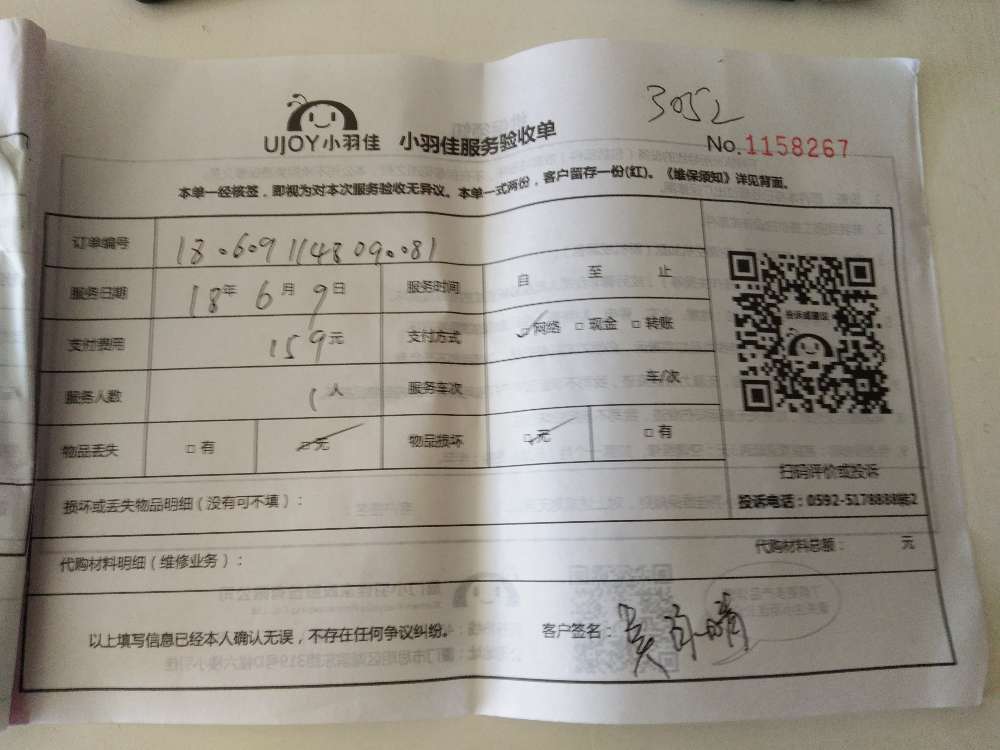 3052
UJOY小羽佳 小羽佳服务验收单
No.1158267
本单一经核签，即视为对本次服务验收无异议。本单一式两份，客户留存一份(红)。《维保须知》详见背面。
订单编号 180609114809081
服务日期 18年6月9日 服务时间 自 至 止
支付费用 159元 支付方式 □网络 □现金 □转账
服务人数 1人 服务车次 车/次
物品丢失 □有 □无 物品损坏 □无 □有
投诉或建议
扫码评价或投诉
投诉电话：0592-5178888转2
损坏或丢失物品明细（没有可不填）：
代购材料明细（维修业务）： 代购材料总额： 元
以上填写信息已经本人确认无误，不存在任何争议纠纷。 客户签名：